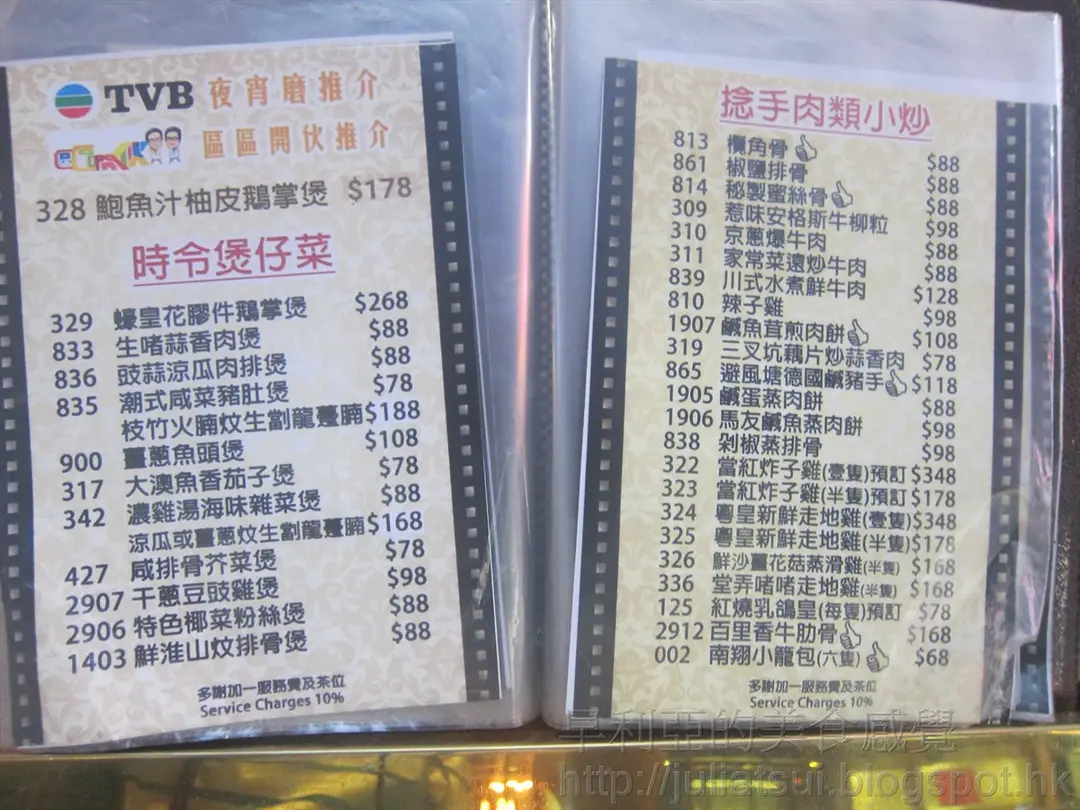 TVB 夜宵磨推介
區區開伙推介
328 鮑魚汁柚皮鵝掌煲 $178
時令煲仔菜
329 蠔皇花膠件鵝掌煲 $268
833 生啫蒜香肉煲 $88
836 豉蒜涼瓜肉排煲 $88
835 潮式咸菜豬肚煲 $78
枝竹火腩炆生劏龍躉腩 $188
900 薑蔥魚頭煲 $108
317 大澳魚香茄子煲 $78
342 濃雞湯海味雜菜煲 $88
涼瓜或薑蔥炆生劏龍躉腩 $168
427 咸排骨芥菜煲 $78
2907 干蔥豆豉雞煲 $98
2906 特色椰菜粉絲煲 $88
1403 鮮淮山炆排骨煲 $88
多謝加一服務費及茶位
Service Charges 10%
捻手肉類小炒
813 欖角骨 $88
861 椒鹽排骨 $88
814 秘製蜜絲骨 $88
309 惹味安格斯牛柳粒 $98
310 京蔥爆牛肉 $88
311 家常菜遠炒牛肉 $88
839 川式水煮鮮牛肉 $128
810 辣子雞 $98
1907 鹹魚茸煎肉餅 $108
319 三叉坑藕片炒蒜香肉 $78
865 避風塘德國鹹豬手 $118
1905 鹹蛋蒸肉餅 $88
1906 馬友鹹魚蒸肉餅 $98
838 剁椒蒸排骨 $98
322 當紅炸子雞(壹隻)預訂 $348
323 當紅炸子雞(半隻)預訂 $178
324 粵皇新鮮走地雞(壹隻) $348
325 粵皇新鮮走地雞(半隻) $178
326 鮮沙薑花菇蒸滑雞(半隻) $168
336 堂弄啫啫走地雞(半隻) $168
125 紅燒乳鴿皇(每隻)預訂 $78
2912 百里香牛肋骨 $168
002 南翔小籠包(六隻) $68
多謝加一服務費及茶位
Service Charges 10%
皁利亞的美食感覺
http://juliatsui.blogspot.hk